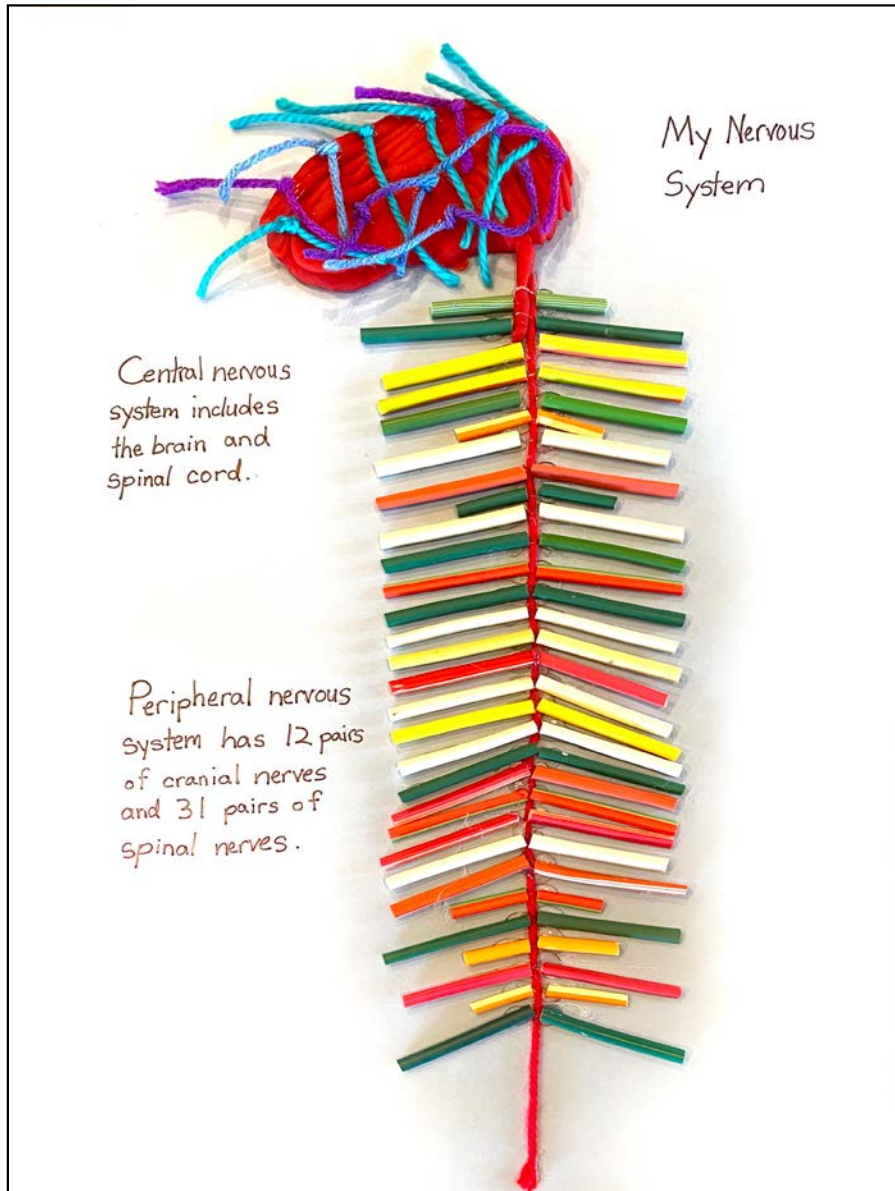 My Nervous
System
Central nervous
system includes
the brain and
spinal cord.
Peripheral nervous
system has 12 pairs
of cranial nerves
and 31 pairs of
spinal nerves.